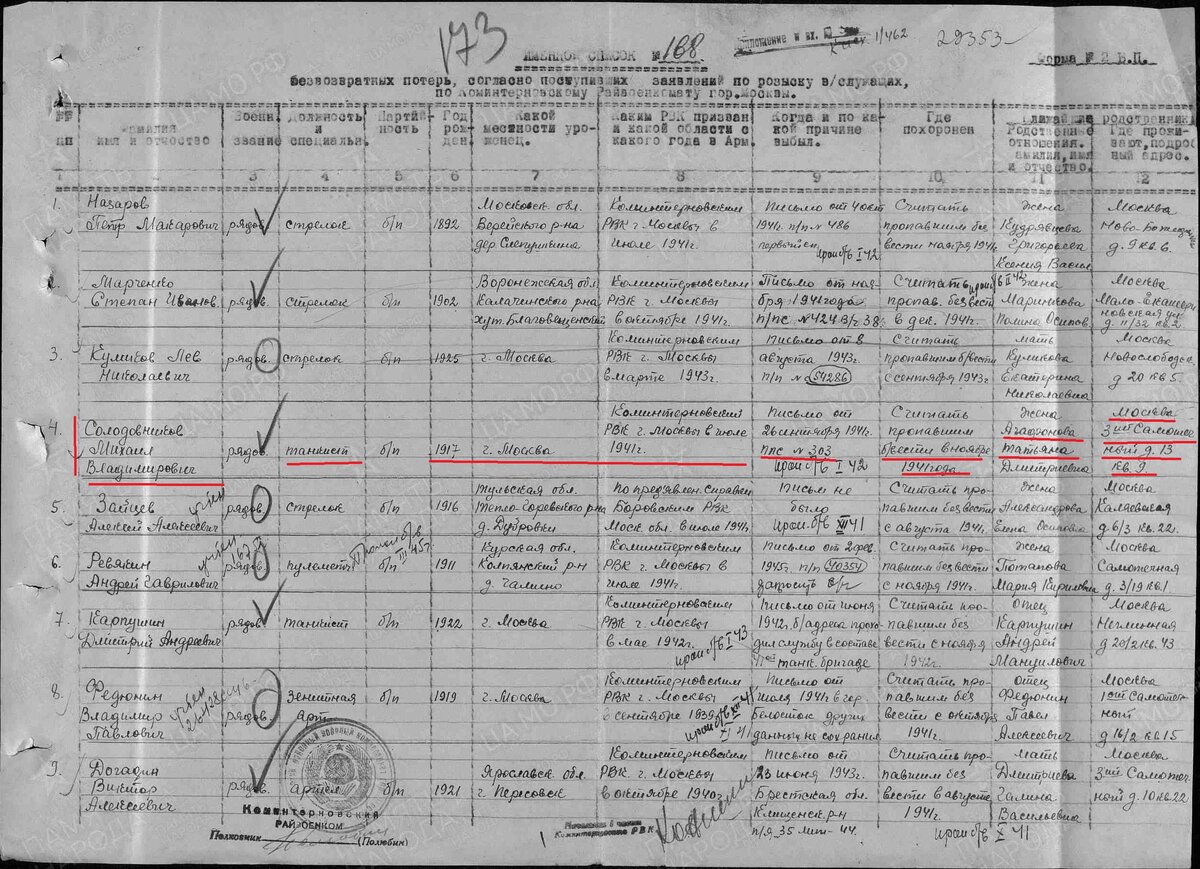 173
ИМЕННОЙ СПИСОК № 168
1/462
29353
Форма № 2 Б.П.
безвозвратных потерь, согласно поступивших заявлений по розыску в/служащих,
по Коминтерновскому Райвоенкомату гор.Москвы.
№№ пп
Фамилия имя и отчество
Военн. звание
Должность и специальн.
Партийность
Год рожден.
Какой местности уроженец.
Каким РВК призван и какой области с какого года в Арм.
Когда и по какой причине выбыл.
Где похоронен
Ближайшие родственники
Родственные отношения. Фамилия, имя и отчество.
Где проживают, подробный адрес.
1 2 3 4 5 6 7 8 9 10 11 12
1. Назаров Петр Макарович
рядов.
стрелок
б/п
1892
Московск. обл. Верейского р-на
Коминтерновским РВК г. Москвы в июле 1941г.
Письмо от 4 окт 1941г. п/п № 486
проп б/в I 42
Считать пропавшим без вести ноября 1941
жена Кудрявцева Григорьева Ксения
Москва
д. 9 кв. 6.
Марченко Степан Иванов.
рядов.
стрелок
б/п
1902
Воронежская обл. Калачинского р-на хут. Благовещенский
Коминтерновским РВК г. Москвы в октябре 1941г.
Письмо от ноября 1941 года
Считать пропав. без вест в дек. 1941г.
жена
Москва
д. 11/32 кв. 2
3. Куликов Лев Николаевич
рядов.
стрелок
б/п
1925
г. Москва
Коминтерновским РВК г. Москвы в марте 1943г.
письмо от 8 августа 1943г. п/п № 54286
Считать пропавшим б/вести с сентября 1943г.
мать Куликова Екатерина Николаевна
Москва Новослободск. д 20 кв 5
4. Солодовников Михаил Владимирович
рядов.
танкист
б/п
1917
г. Москва
Коминтерновский РВК г. Москвы в июле 1941г.
Письмо от 26 сентября 1941г. ппс № 303
проп б/в I 42
Считать пропавшим б/вести в ноябре 1941 года
жена Агафонова Татьяна Дмитриевна
Москва 3ий Самотечный д. 13 кв. 9.
5. Зайцев Алексей Алексеевич
рядов.
б/п
1916
Тульская обл. д. Дубровки
По предъявлен. справки Боровским РВК Моск. обл. в июле 1941г.
Письм не было
проп б/в XII 41
Считать пропавшим без вести с августа 1941г.
жена Александрова Елена Осиповна
Москва Каляевская д 6/3 кв. 22.
6. Ревякин Андрей Гаврилович
рядов.
пулеметч.
б/п
1911
Курская обл. д. Чалино
Коминтерновским РВК г. Москвы в июле 1941г.
Письмо от 2 фев. 1945г. п/п 40354
Считать пропавшим без вести с ноября 1941г.
жена Потапова Мария Кириловна
Москва Самотечная д. 3/19 кв. 1
7. Карпушин Дмитрий Андреевич
рядов
танкист
б/п
1922
г. Москва
Коминтерновским РВК г. Москвы в мае 1942г.
проп б/в I 43
Письмо от июня 1942г. б/адреса проходил службу в составе танк. бригаде
Считать пропавшим без вести с ноября 1942г.
отец Карпушин Андрей Мануилович
Москва Неглинная д 20/2 кв. 43
8. Федюнин Владимир Павлович
рядов.
Зенитная Арт.
б/п
1919
г. Москва
Коминтерновским РВК г. Москвы в сентябре 1939г.
Письмо от июля 1941г в гор. Белосток других данных не сохрани
Считать пропавшим без вести с октября 1941г.
отец Федюнин Павел Алексеевич
Москва 1ый Самотечный д 16/2 кв. 15
9. Догадин Виктор Алексеевич
рядов.
артел.
б/п
1921
Ярославск. обл.
Коминтерновским РВК г. Москвы в октябре 1940г.
Письмо от 23 июня 1943г. Брестской обл.
Считать пропавшим без вести в августе 1941г.
мать Дмитриева Галина Васильевна
Москва 3ий Самотечный д. 10 кв. 22
проп б/в X 41
Коминтерновский
РАЙВОЕНКОМ
Полковник (Полюбин)
Коминтерновского РВК